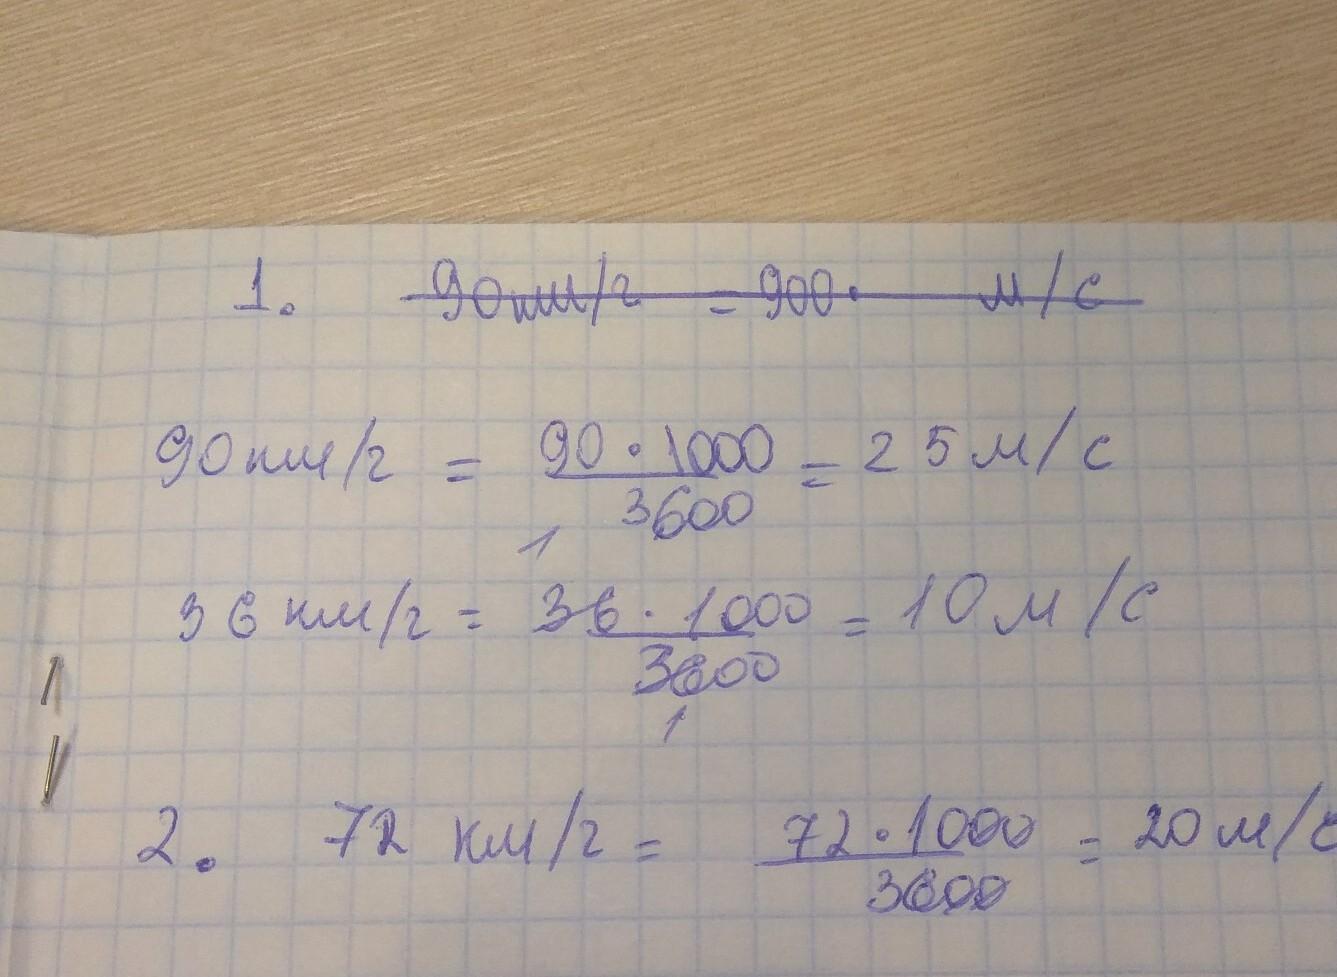 1. 90км/г = 900· м/с
90км/г = 90·1000/3600 = 25м/с
1
36км/г = 36·1000/3600 = 10м/с
1
2. 72 км/г = 72·1000/3600 = 20м/с